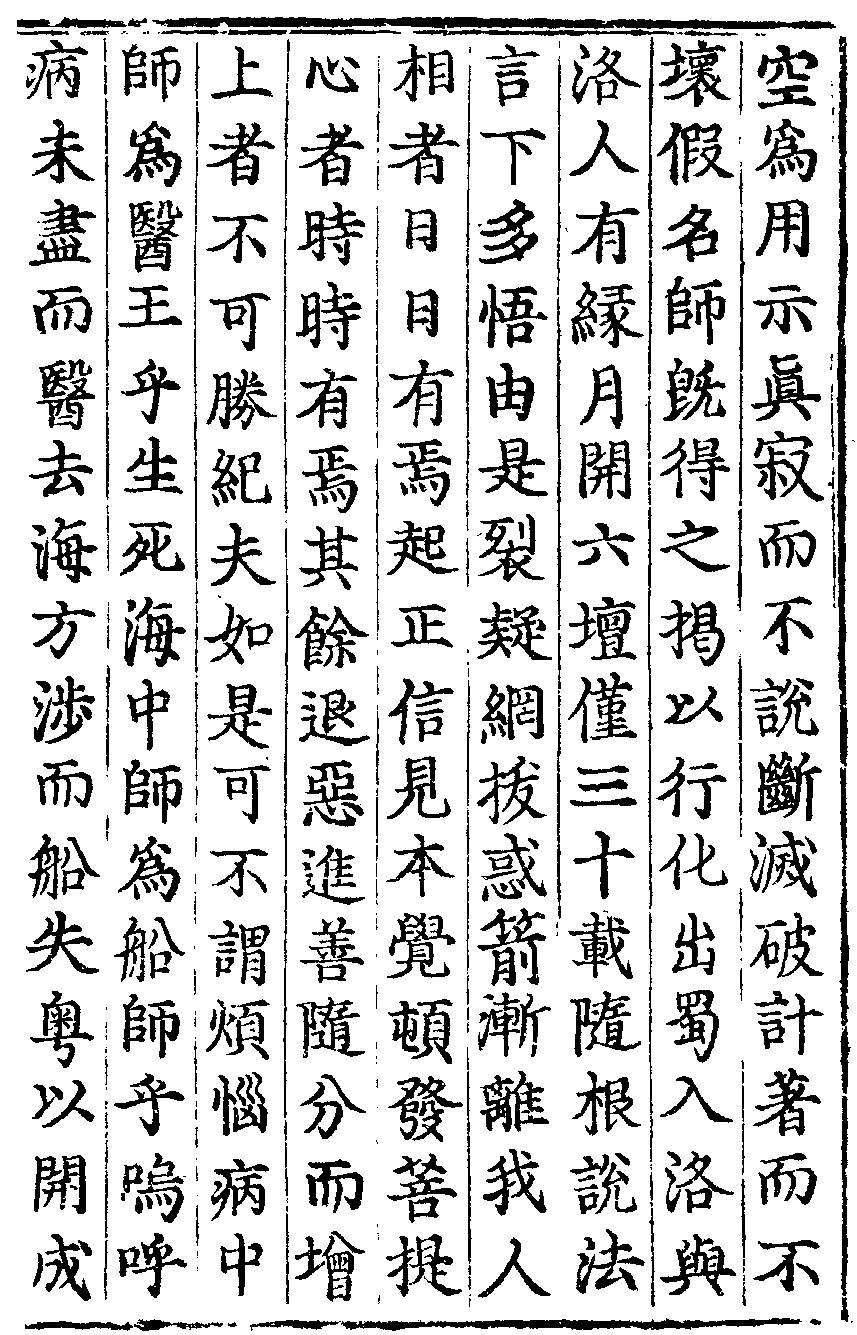 空爲用示眞寂而不說斷滅破計著而不
壞假名師旣得之揭以行化出蜀入洛與
洛人有緣月開六壇僅三十載隨根說法
言下多悟由是裂疑網拔惑箭漸離我人
相者日日有焉起正信見本覺頓發菩提
心者時時有焉其餘退惡進善隨分而增
上者不可勝紀夫如是可不謂煩惱病中
師爲醫王乎生死海中師爲船師乎嗚呼
病未盡而醫去海方涉而船失粤以開成